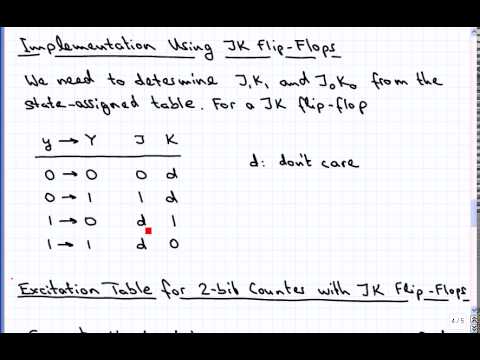 Implementation Using JK Flip-Flops
We need to determine J₁K₁ and J₀K₀ from the
state-assigned table. For a JK flip-flop
y → Y J K
0 → 0 0 d
d: don't care
0 → 1 1 d
1 → 0 d 1
1 → 1 d 0
Excitation Table for 2-bit Counter with JK Flip-Flops
4 / 5